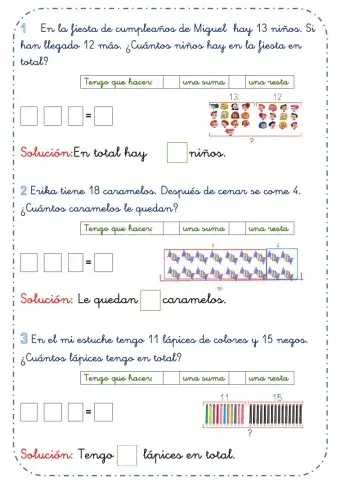 1 En la fiesta de cumpleaños de Miguel hay 13 niños. Si
han llegado 12 más. ¿Cuántos niños hay en la fiesta en
total?
Tengo que hacer: una suma una resta
13 12
=
?
Solución: En total hay niños.
2 Erika tiene 18 caramelos. Después de cenar se come 4.
¿Cuántos caramelos le quedan?
Tengo que hacer: una suma una resta
? 4
=
18
Solución: Le quedan caramelos.
3 En el mi estuche tengo 11 lápices de colores y 15 negos.
¿Cuántos lápices tengo en total?
Tengo que hacer: una suma una resta
11 15
=
?
Solución: Tengo lápices en total.